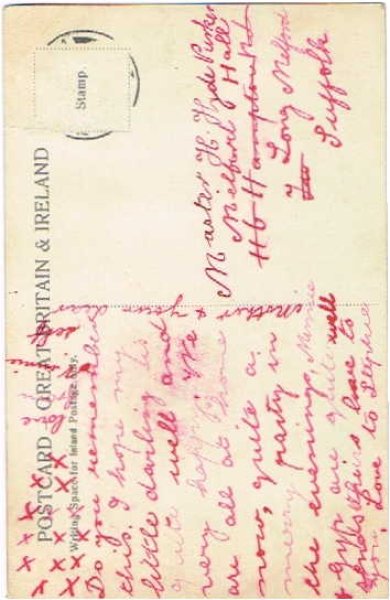 POSTCARD GREAT BRITAIN & IRELAND
Writing Space for Inland Postage Only.
Stamp.
Master H. Hyde Parker
Melford Hall
H6 Hampton Rd
Long Melford
Suffolk
x x x x x x
x x x x x
Do you remember
this. I hope my
little darling is
quite well and
very happy. We
are all at home
now, quite a
merry party in
the evenings. Minnie
& Gyp are quite well
sends love to
love to Stephie
Mother & yours dear